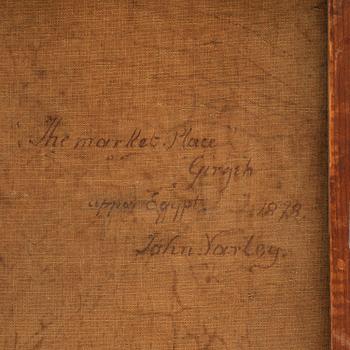 "The market Place"
of
Girgeh
upper Egypt. 1878.
John Varley.